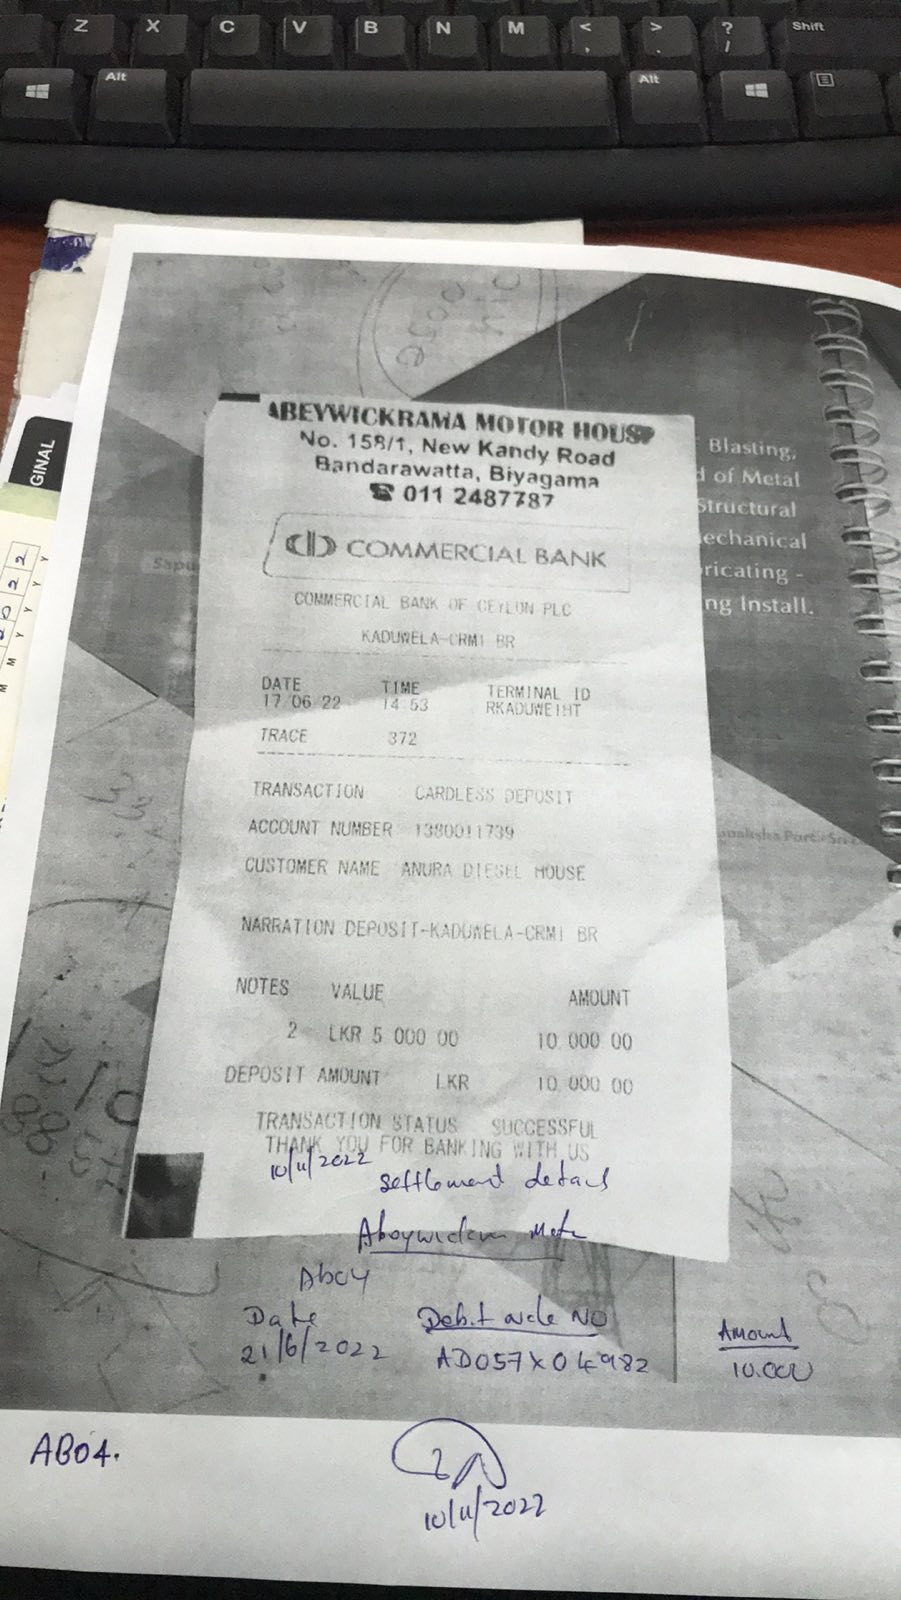 Z X C V B N M < , > . ? / Shift
Alt Alt
GINAL
ABEYWICKRAMA MOTOR HOUSE
No. 158/1, New Kandy Road
Bandarawatta, Biyagama
☎ 011 2487787
COMMERCIAL BANK
COMMERCIAL BANK OF CEYLON PLC
KADUWELA-CRM1 BR
DATE TIME TERMINAL ID
17/06/22 14:53 RKADUWE1HT
TRACE 372
TRANSACTION CARDLESS DEPOSIT
ACCOUNT NUMBER 1380011739
CUSTOMER NAME ANURA DIESEL HOUSE
NARRATION DEPOSIT-KADUWELA-CRM1 BR
NOTES VALUE AMOUNT
2 LKR 5,000.00 10,000.00
DEPOSIT AMOUNT LKR 10,000.00
TRANSACTION STATUS SUCCESSFUL
THANK YOU FOR BANKING WITH US
Blasting,
d of Metal
Structural
echanical
ricating -
ng Install.
10/11/2022
settlement details
Abey
Date Debit note NO Amount
21/6/2022 AD057X04982 10.000
AB04.
10/11/2022